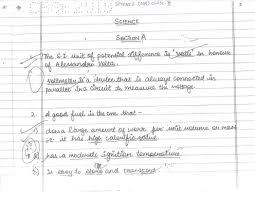 SCIENCE (086) CLASS-X
SCIENCE
SECTION A
1. The S.I unit of potential difference is "volts" in honour
of Alessandro Volta.
Voltmeter is a device that is always connected in
parallel in a circuit to measure the voltage.
2. A good fuel is the one that -
does a large amount of work per unit volume or mass
it has high calorific value.
has a moderate ignition temperature.
is easy to store and transport.